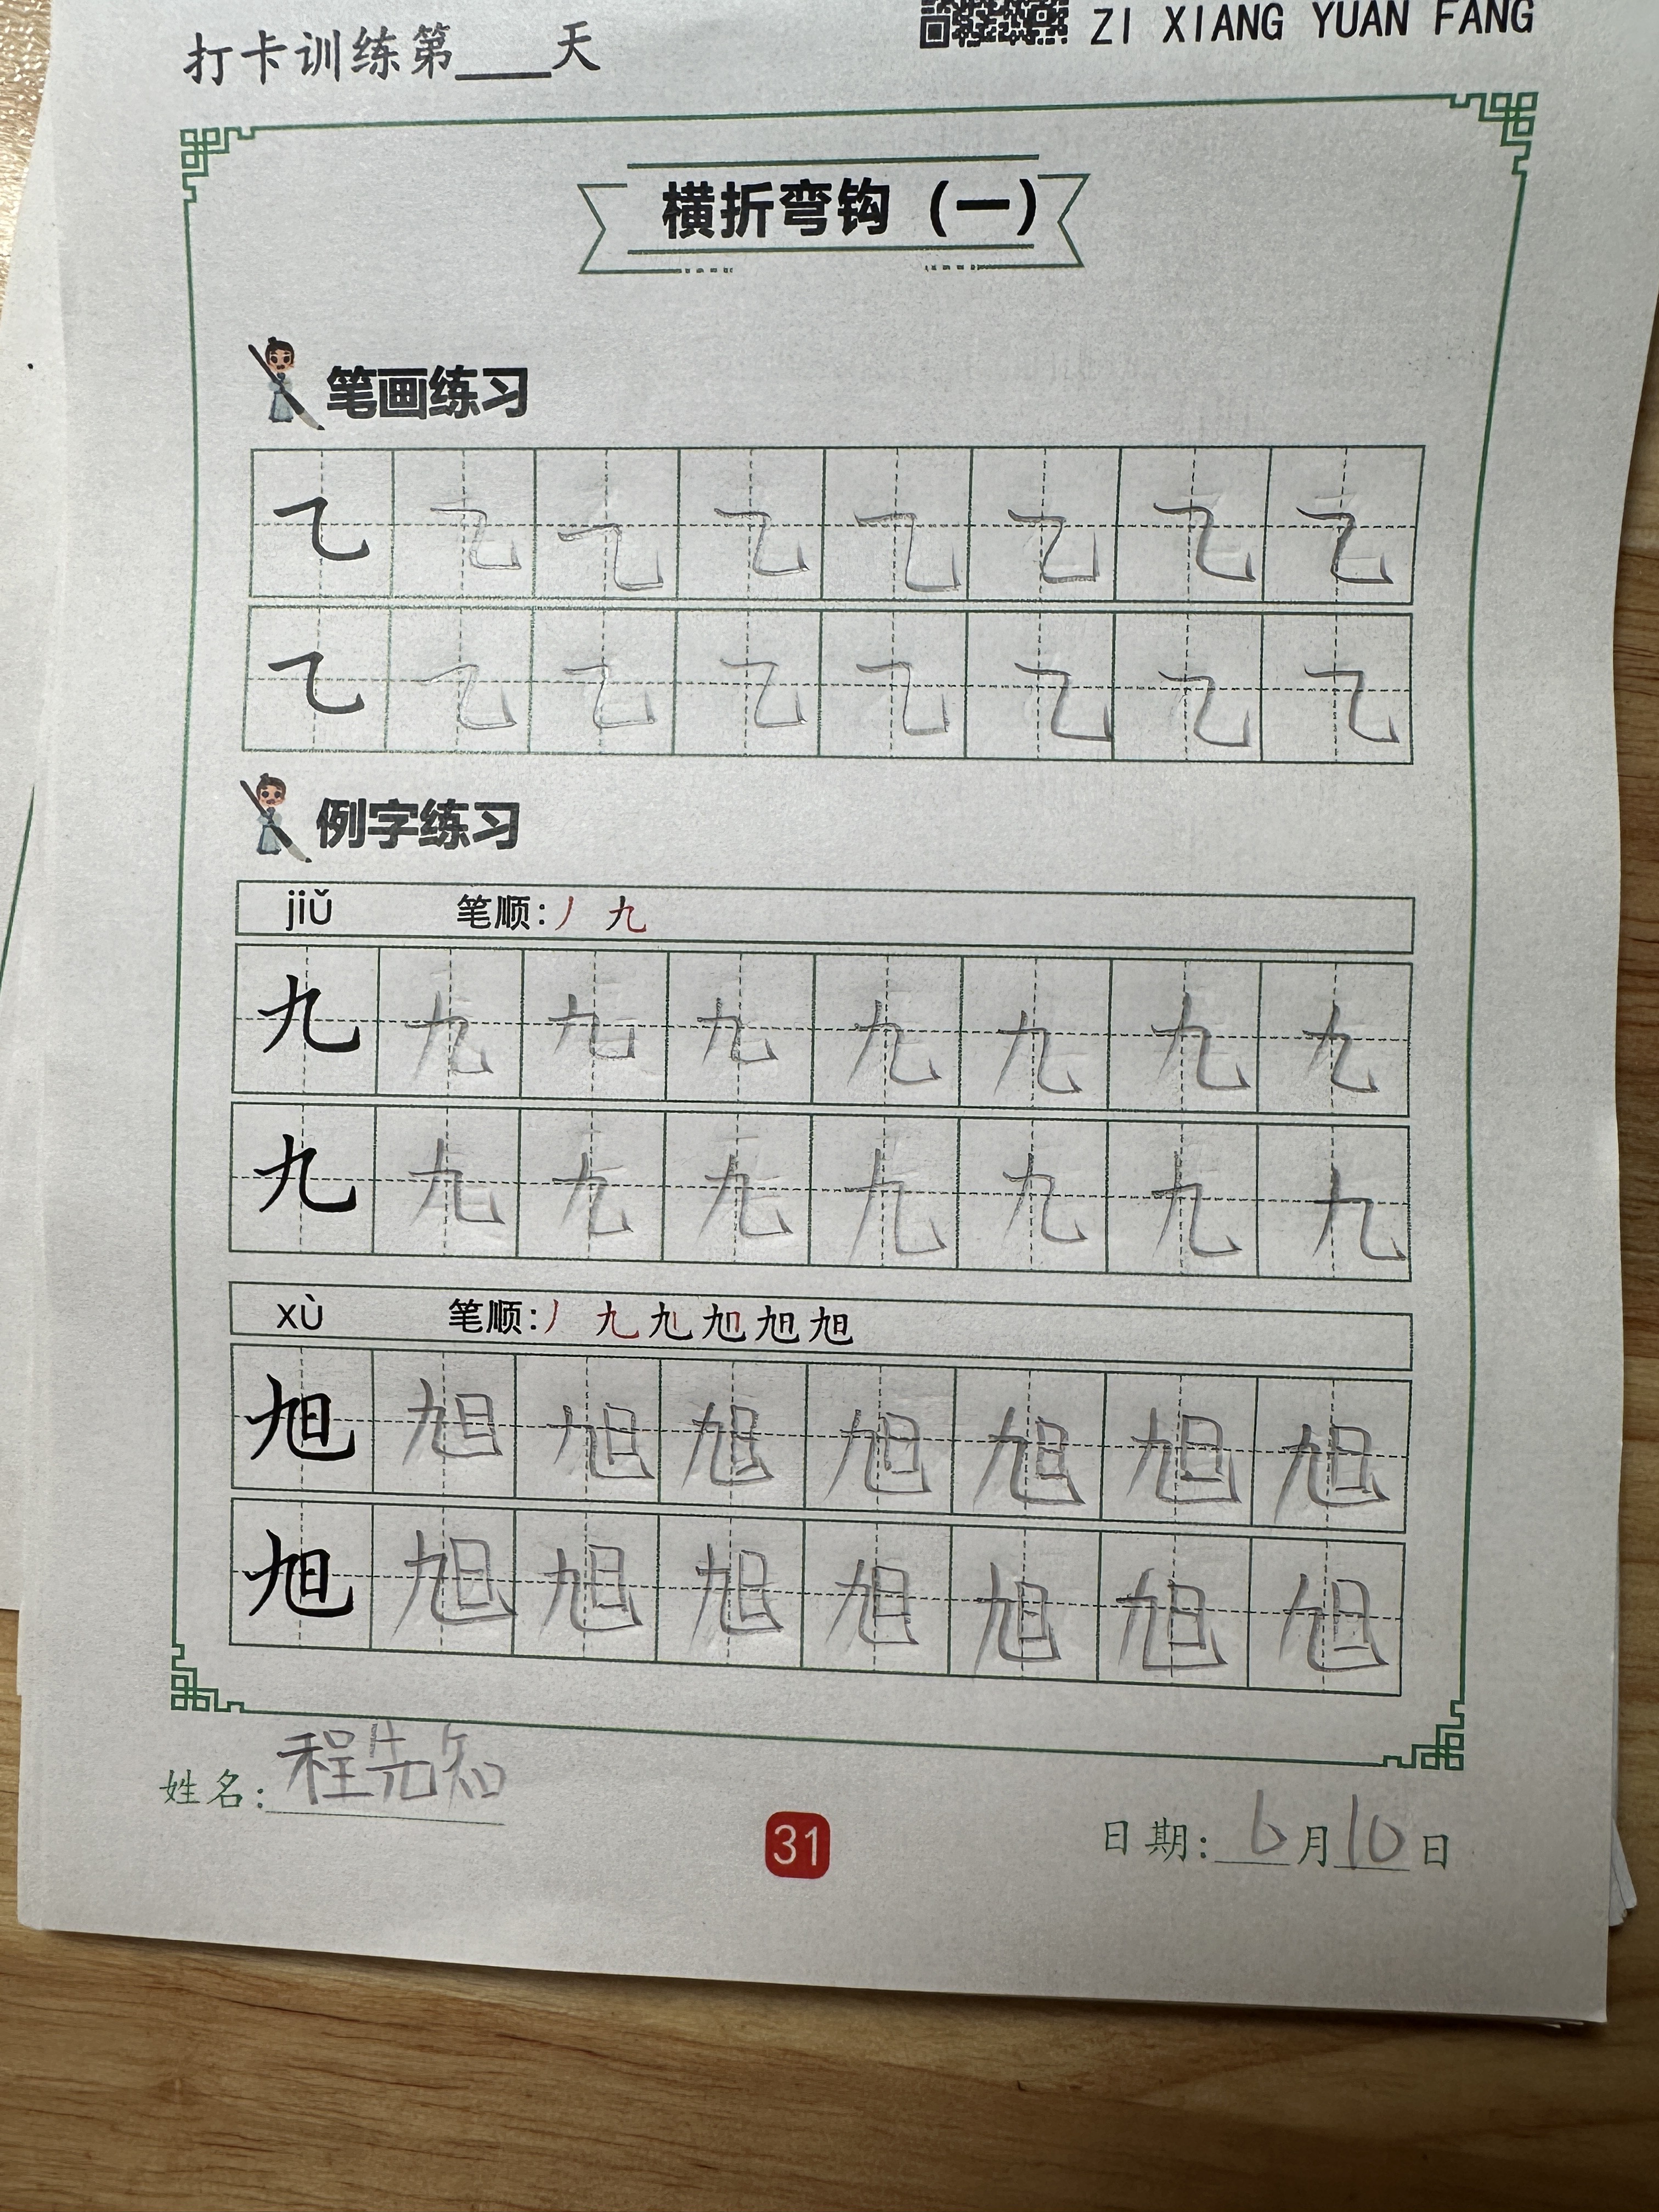 打卡训练第____天
ZI XIANG YUAN FANG
横折弯钩（一）
笔画练习
乙 乙 乙 乙 乙 乙 乙 乙
乙 乙 乙 乙 乙 乙 乙 乙
例字练习
jiǔ 笔顺:丿 九
九 九 九 九 九 九 九 九
九 九 九 九 九 九 九 九
xù 笔顺:丿 九 九 旭 旭 旭
旭 旭 旭 旭 旭 旭 旭 旭
旭 旭 旭 旭 旭 旭 旭 旭
姓名:程先知
31
日期:6月10日